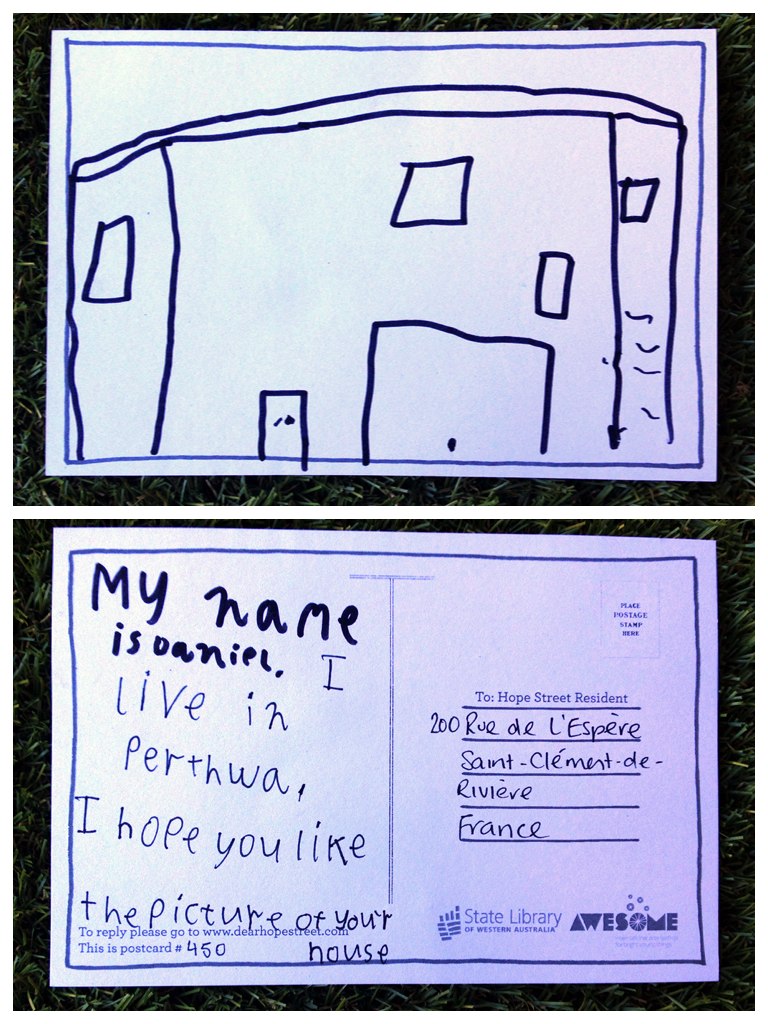 My name
is Daniel. I
live in
Perthwa,
I hope you like
the picture of your
house
To reply please go to www.dearhopestreet.com
This is postcard # 450
PLACE
POSTAGE
STAMP
HERE
To: Hope Street Resident
200 Rue de L'Espère
Saint-Clément-de-
Rivière
France
State Library
OF WESTERN AUSTRALIA
AWESOME